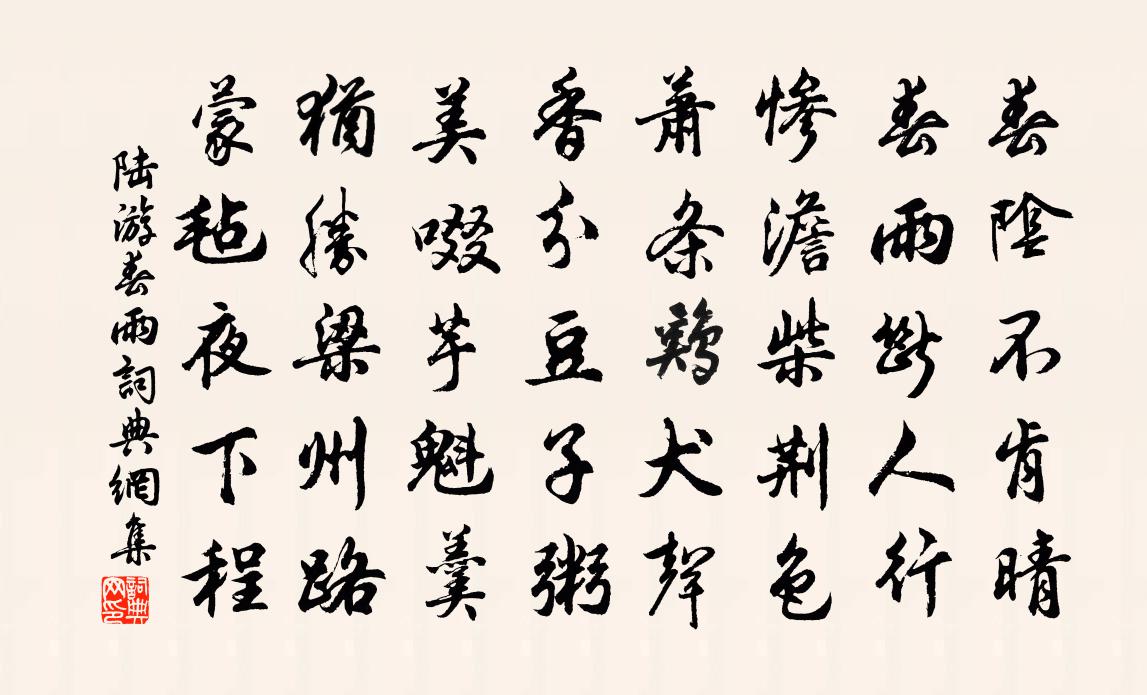 春陰不肯晴
春雨斷人行
慘澹柴荆色
蕭条鷄犬聲
香分豆子粥
美啜芋魁羹
猶勝梁州路
蒙毡夜下程
陆游春雨詞典網集
詞典网印